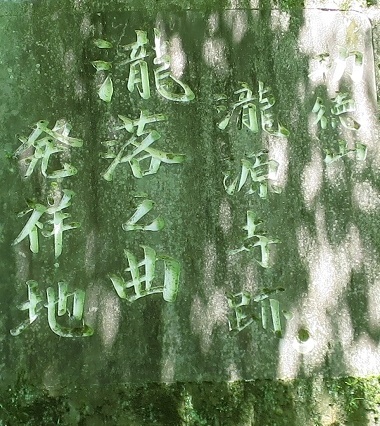 徳山
瀧源寺
瀧落之曲
発祥地